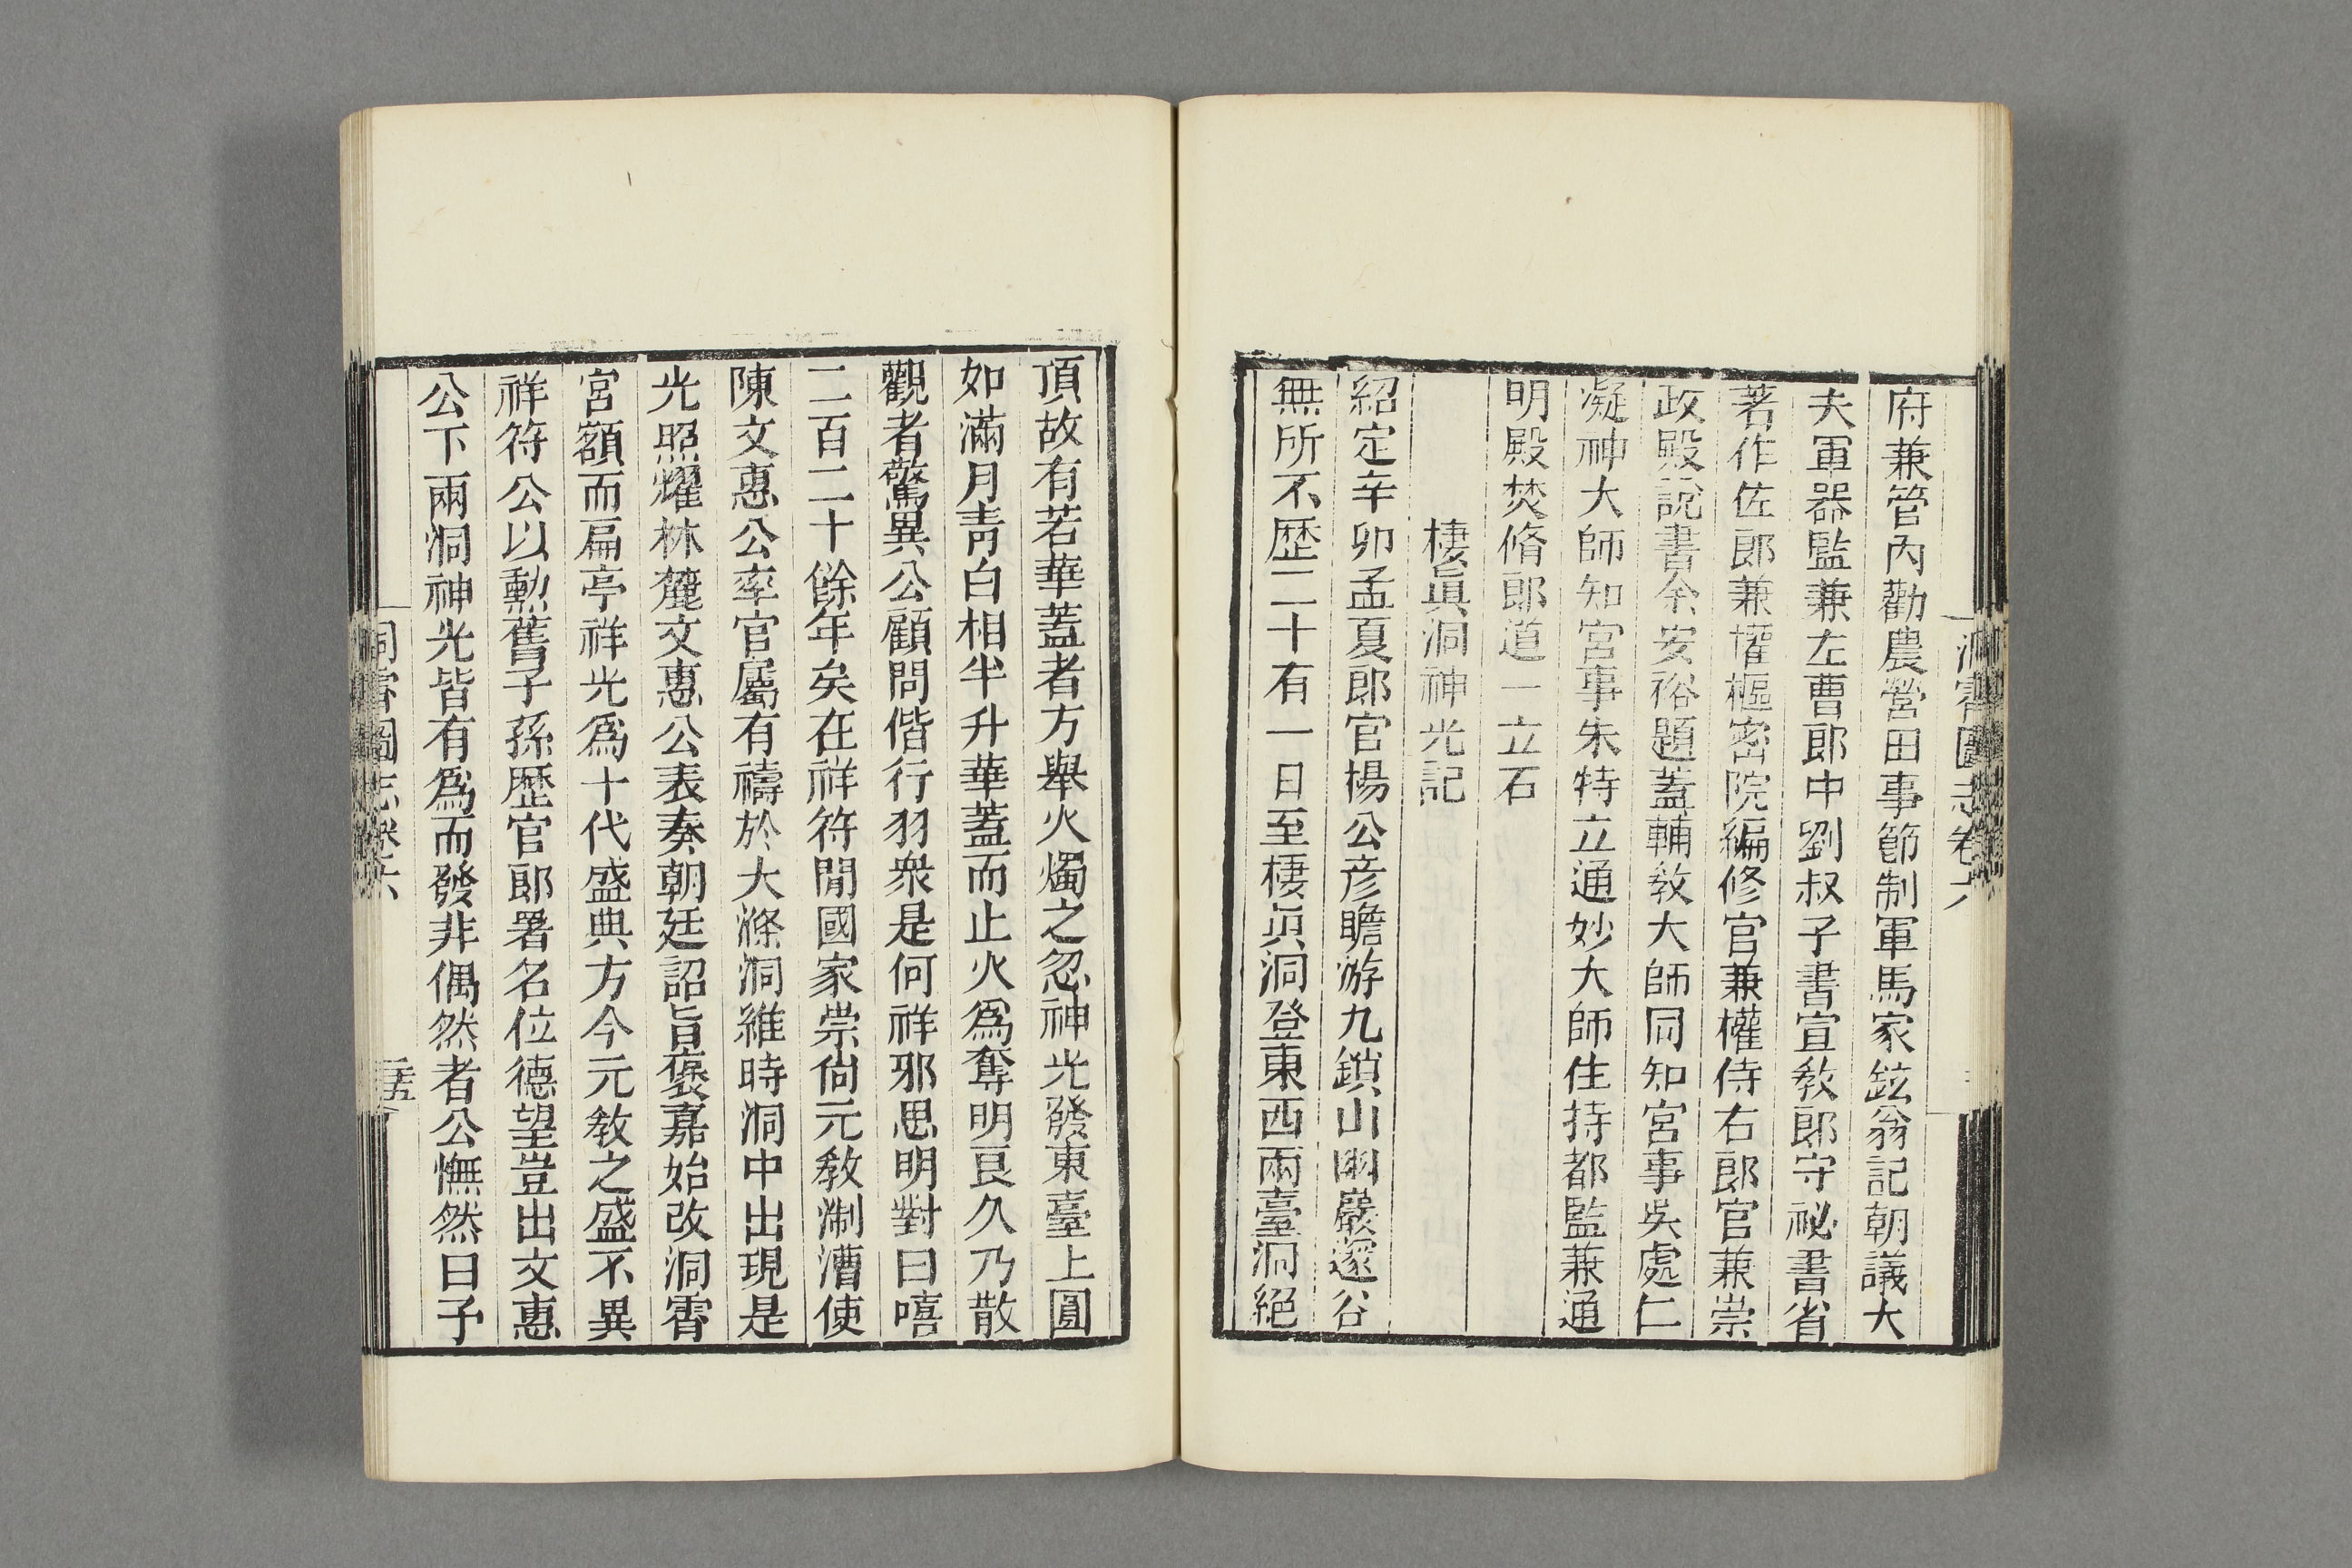 洞霄圖志卷六
府兼管內勸農營田事節制軍馬家鉉翁記朝議大
夫軍器監兼左曹郎中劉叔子書宣敎郎守祕書省
著作佐郎兼權樞密院編修官兼權侍右郎官兼崇
政殿說書余安裕題蓋輔敎大師同知宮事吳處仁
凝神大師知宮事朱特立通妙大師住持都監兼通
明殿焚脩郎道一立石
棲眞洞神光記
紹定辛卯孟夏郎官楊公彦瞻游九鎖山幽巖邃谷
無所不歷二十有一日至棲眞洞登東西兩臺洞絕
頂故有若華蓋者方舉火燭之忽神光發東臺上圓
如滿月靑白相半升華蓋而止火爲奪明良久乃散
觀者驚異公顧問偕行羽衆是何祥邪思明對曰嘻
二百二十餘年矣在祥符閒國家崇尙元敎淛漕使
陳文惠公率官屬有禱於大滌洞維時洞中出現是
光照耀林麓文惠公表奏朝廷詔旨襃嘉始改洞霄
宮額而扁亭祥光爲十代盛典方今元敎之盛不異
祥符公以勳舊子孫歷官郎署名位德望豈出文惠
公下兩洞神光皆有爲而發非偶然者公憮然曰予
洞霄圖志卷六